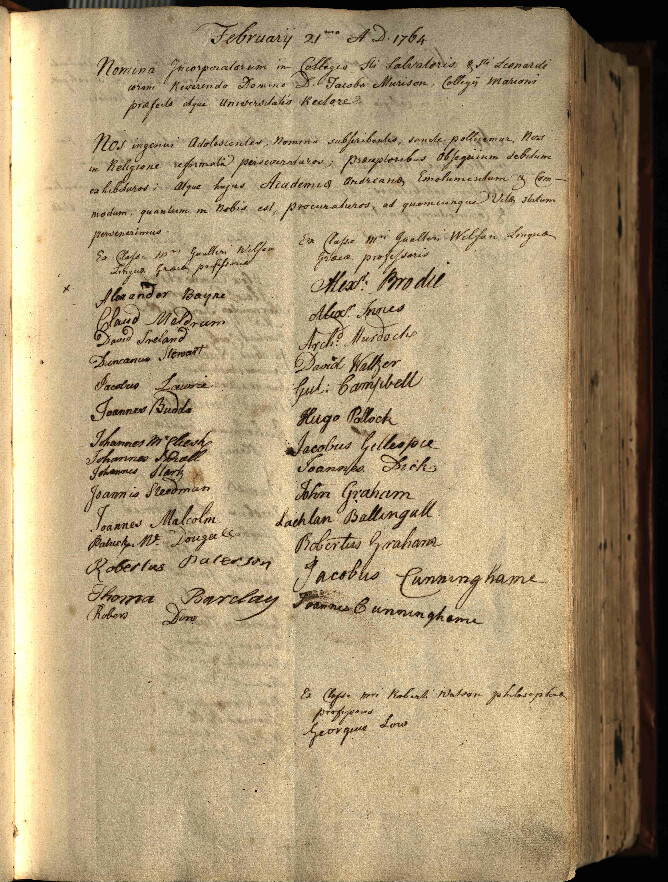 February 21mo A.D. 1764
Nomina Incorporatorum in Collegio Sti Salvatoris & Sti Leonardi
coram Reverendo Domino D. Jacobo Murison, Collegij Mariani
præfecto atque Universitatis Rectore.
Nos ingenui Adolescentes, Nomina subscribentes, sancte pollicemur, Nos
in Religione reformatâ perseveraturos; Præceptoribus Obsequium debitum
exhibituros; Atque hujus Academiæ Andreanæ Emolumentum & Com-
modum, quantum in Nobis est, procuraturos, ad quemcunque Vitæ statum
pervenerimus.
Ex Classe mri Gualteri Wilson
Linguæ Græcæ professoris
Alexander Bayne
Claud Meldrum
David Ireland
Duncanus Stewart
Jacobus Lawrie
Joannes Budda
Johannes McLeish
Johannes
Johannes Stark
Joannis Steedman
Joannes Malcolm
Patrick Mc Dougall
Robertus Paterson
Thoma Barclay
Robers Dow
Ex Classe mri Gualteri Wilson Linguæ
Græcæ professoris
Alexr. Brodie
Alexr. Innes
Archd. Murdoch
David Walker
Gul: Campbell
Hugo Pollock
Jacobus Gillespie
Joannes Dick
John Graham
Lachlan Ballingall
Robertus Graham
Jacobus Cunninghame
Joannes Cunninghame
Ex Classe mri Roberti Watson philosophiæ
professoris
Georgius Low